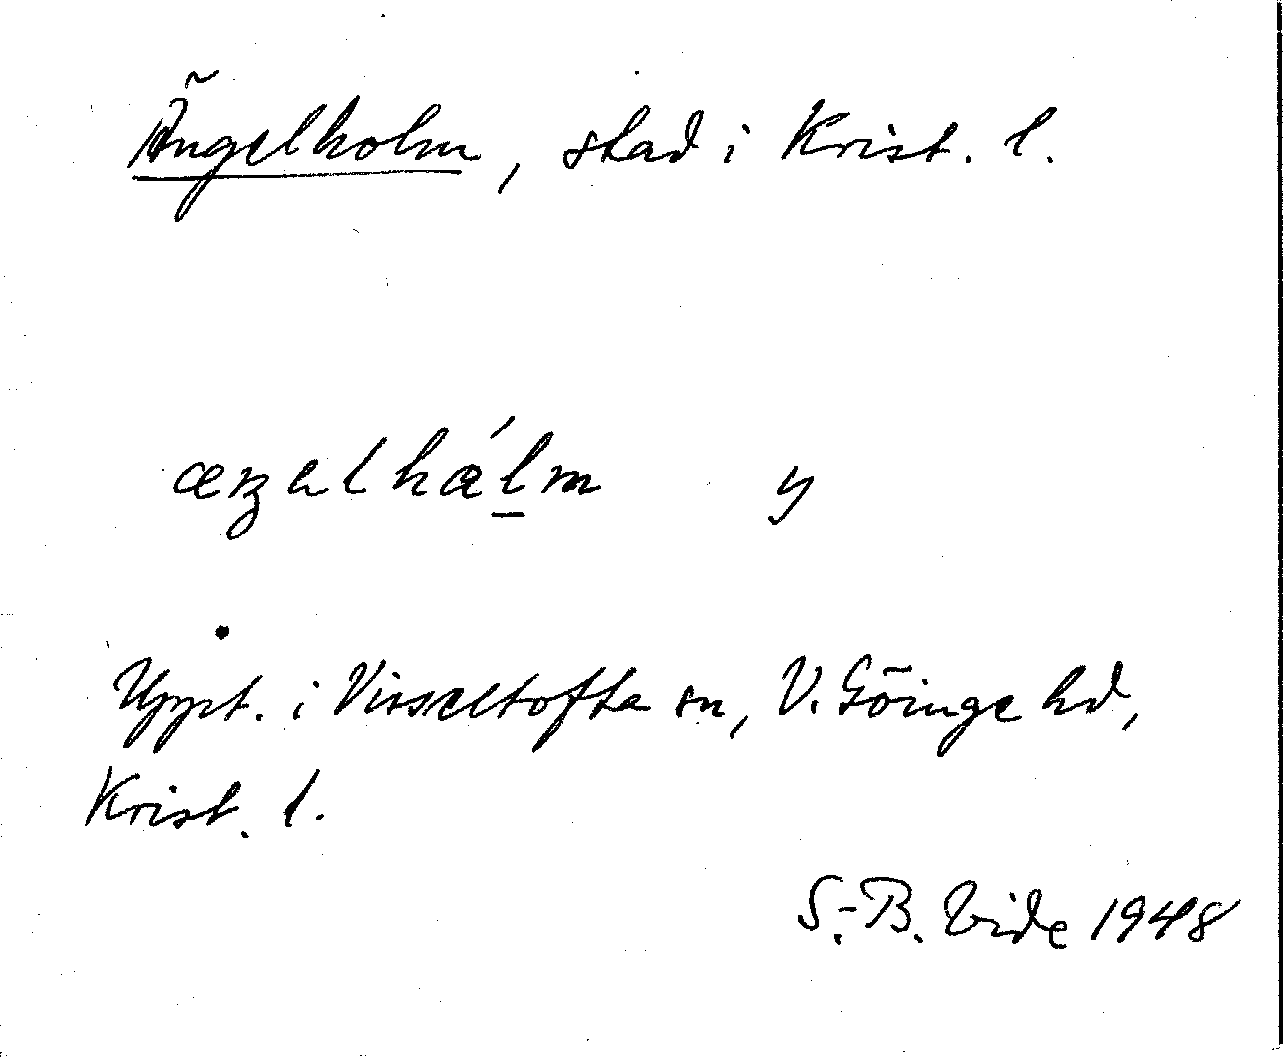 Ängelholm, stad i Krist. l.
y
Uppt. i Visseltofta sn, V. Göinge hd,
Krist. l.
S.-B. Vide 1948